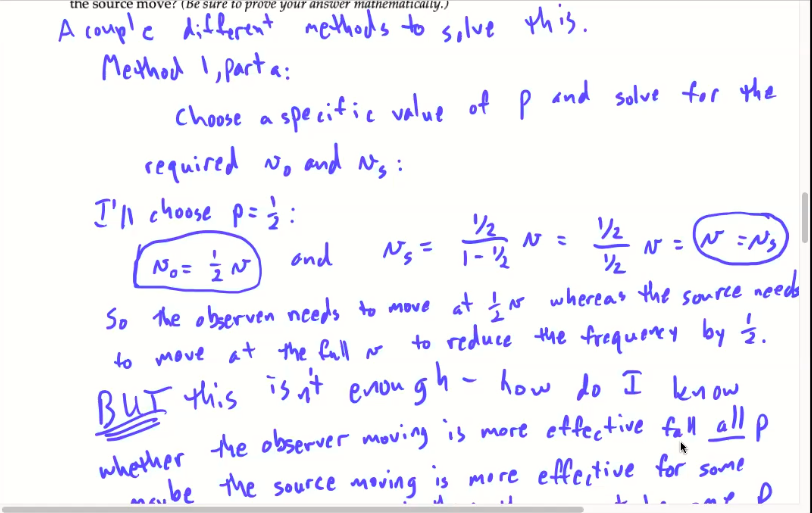 the source move? (Be sure to prove your answer mathematically.)
A couple different methods to solve this.
Method 1, part a:
Choose a specific value of p and solve for the
required v₀ and vₛ:
I'll choose p = 1/2:
v₀ = 1/2 v and vₛ = (1/2)/(1 - 1/2) v = (1/2)/(1/2) v = v = vₛ
So the observer needs to move at 1/2 v whereas the source needs
to move at the full v to reduce the frequency by 1/2.
BUT this isn't enough - how do I know
whether the observer moving is more effective fall all p
maybe the source moving is more effective for some
p